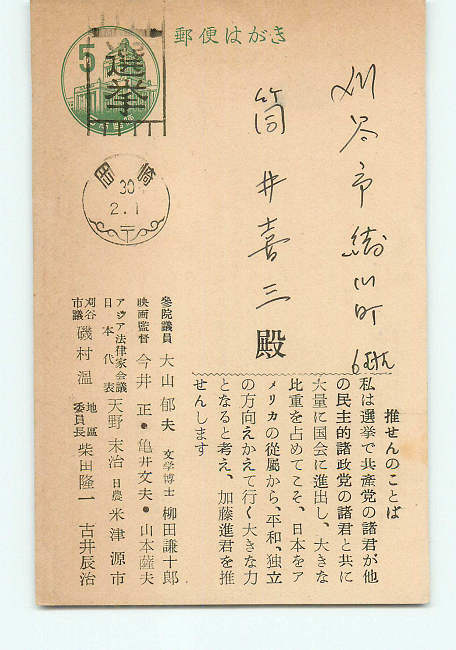 郵便はがき
5
選挙
岡崎
30
2.1
〒
刈谷市
町
筒井喜三
殿
推せんのことば
私は選挙で共産党の諸君が他
の民主的諸政党の諸君と共に
大量に国会に進出し、大きな
比重を占めてこそ、日本をア
メリカの従属から、平和、独立
の方向えかえて行く大きな力
となると考え、加藤進君を推
せんします
参院議員 大山郁夫 文学博士 柳田謙十郎
映画監督 今井正・亀井文夫・山本薩夫
アジア法律家会議日本代表 天野末治 日農 米津源市
刈谷市議 磯村温 地區委員長 柴田隆一 古井辰治